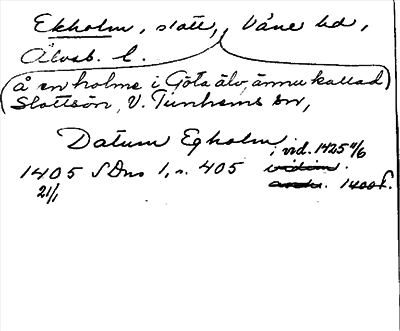 Ekholm, slott, Väne hd,
Älvsb. l.
(å en holme i Göta älv, ännu kallad
Slottsön, V. Tunhems sn,)
Datum Egholm
; vid. 1425 11/6
1405 SDns 1, s. 405 vidim.
21/1 1400 f.